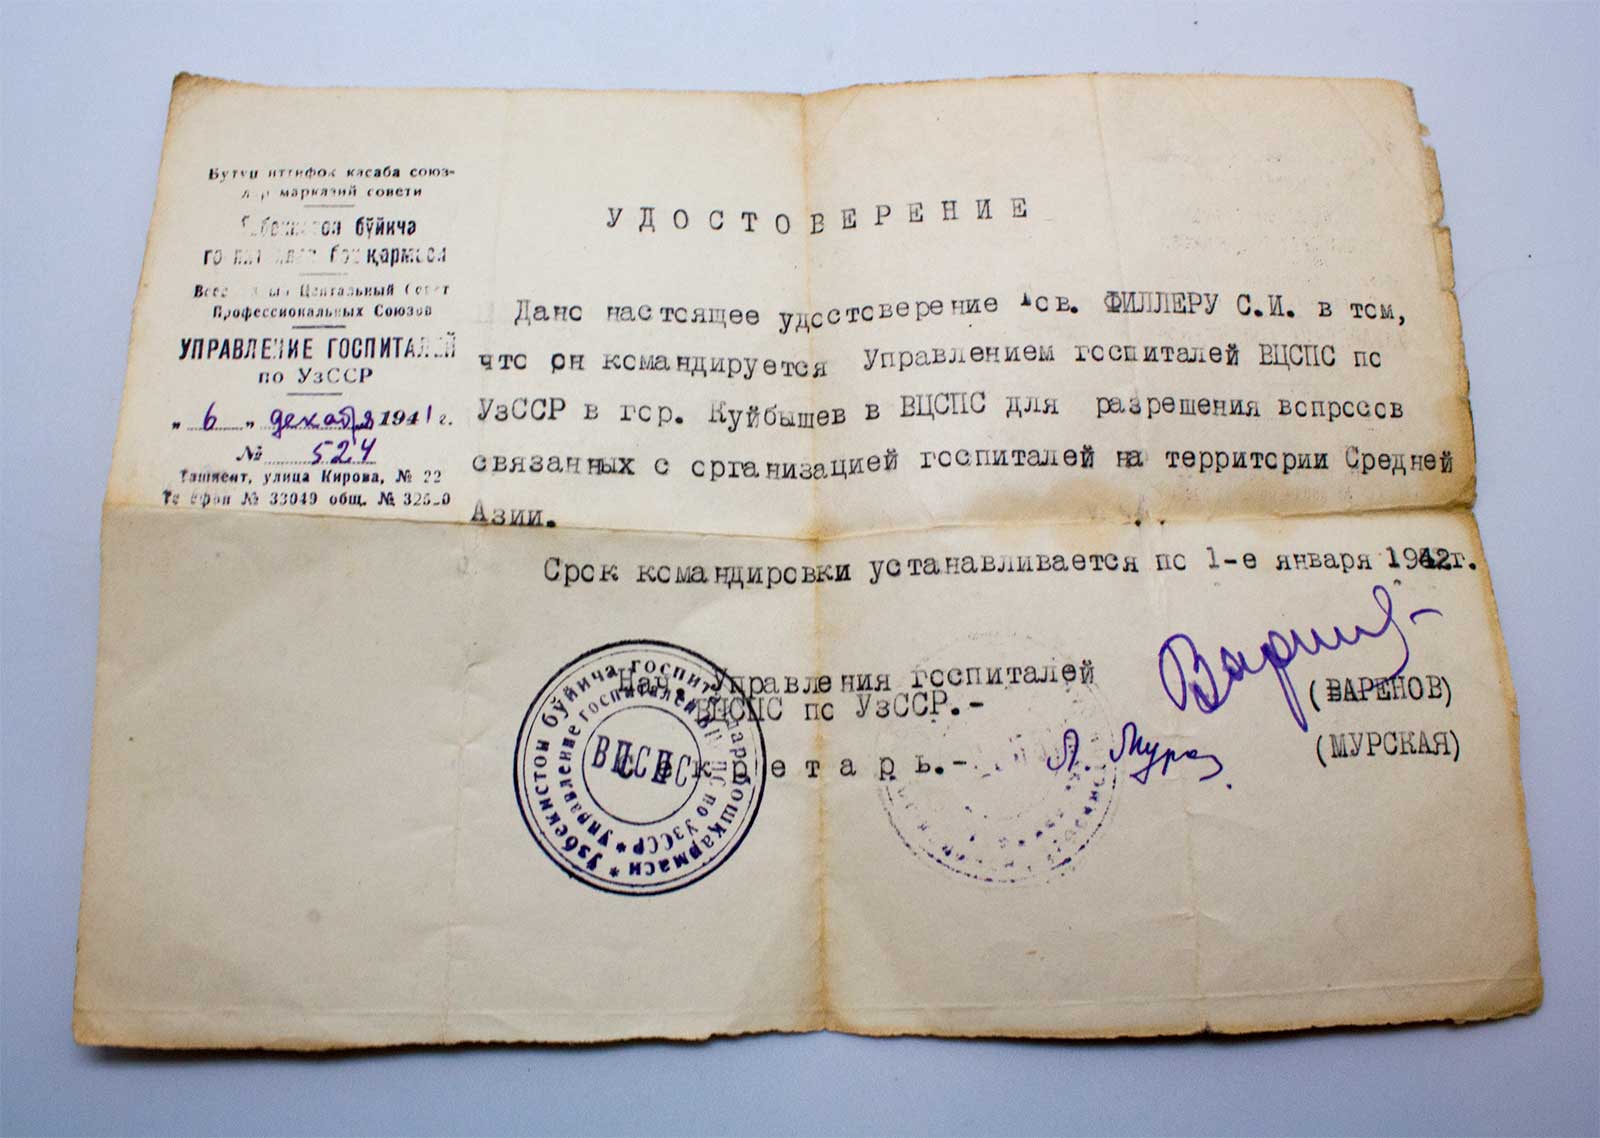 Бутун иттифоқ касаба союз-
лар марказий совети
бўйича
бошқармаси
Всесоюзный Центральный Совет
Профессиональных Союзов
УПРАВЛЕНИЕ ГОСПИТАЛЕЙ
по УзССР
„ 6 „ декабря 1941 г.
№ 524
Ташкент, улица Кирова, № 22
Телефон № 33049 общ. №
УДОСТОВЕРЕНИЕ
Дано настоящее удостоверение тов. ФИЛЛЕРУ С.И. в том,
что он командируется Управлением госпиталей ВЦСПС по
УзССР в гор. Куйбышев в ВЦСПС для разрешения вопросов
связанных с организацией госпиталей на территории Средней
Азии.
Срок командировки устанавливается по 1-е января 1942г.
Нач. Управления госпиталей
ВЦСПС по УзССР.-
(ВАРЕНОВ)
Секретарь.-
Л. Мурс
(МУРСКАЯ)
Узбекистон бўйича госпиталлар бошқармаси *
Управление госпиталей ВЦСПС по УзССР *
ВЦСПС